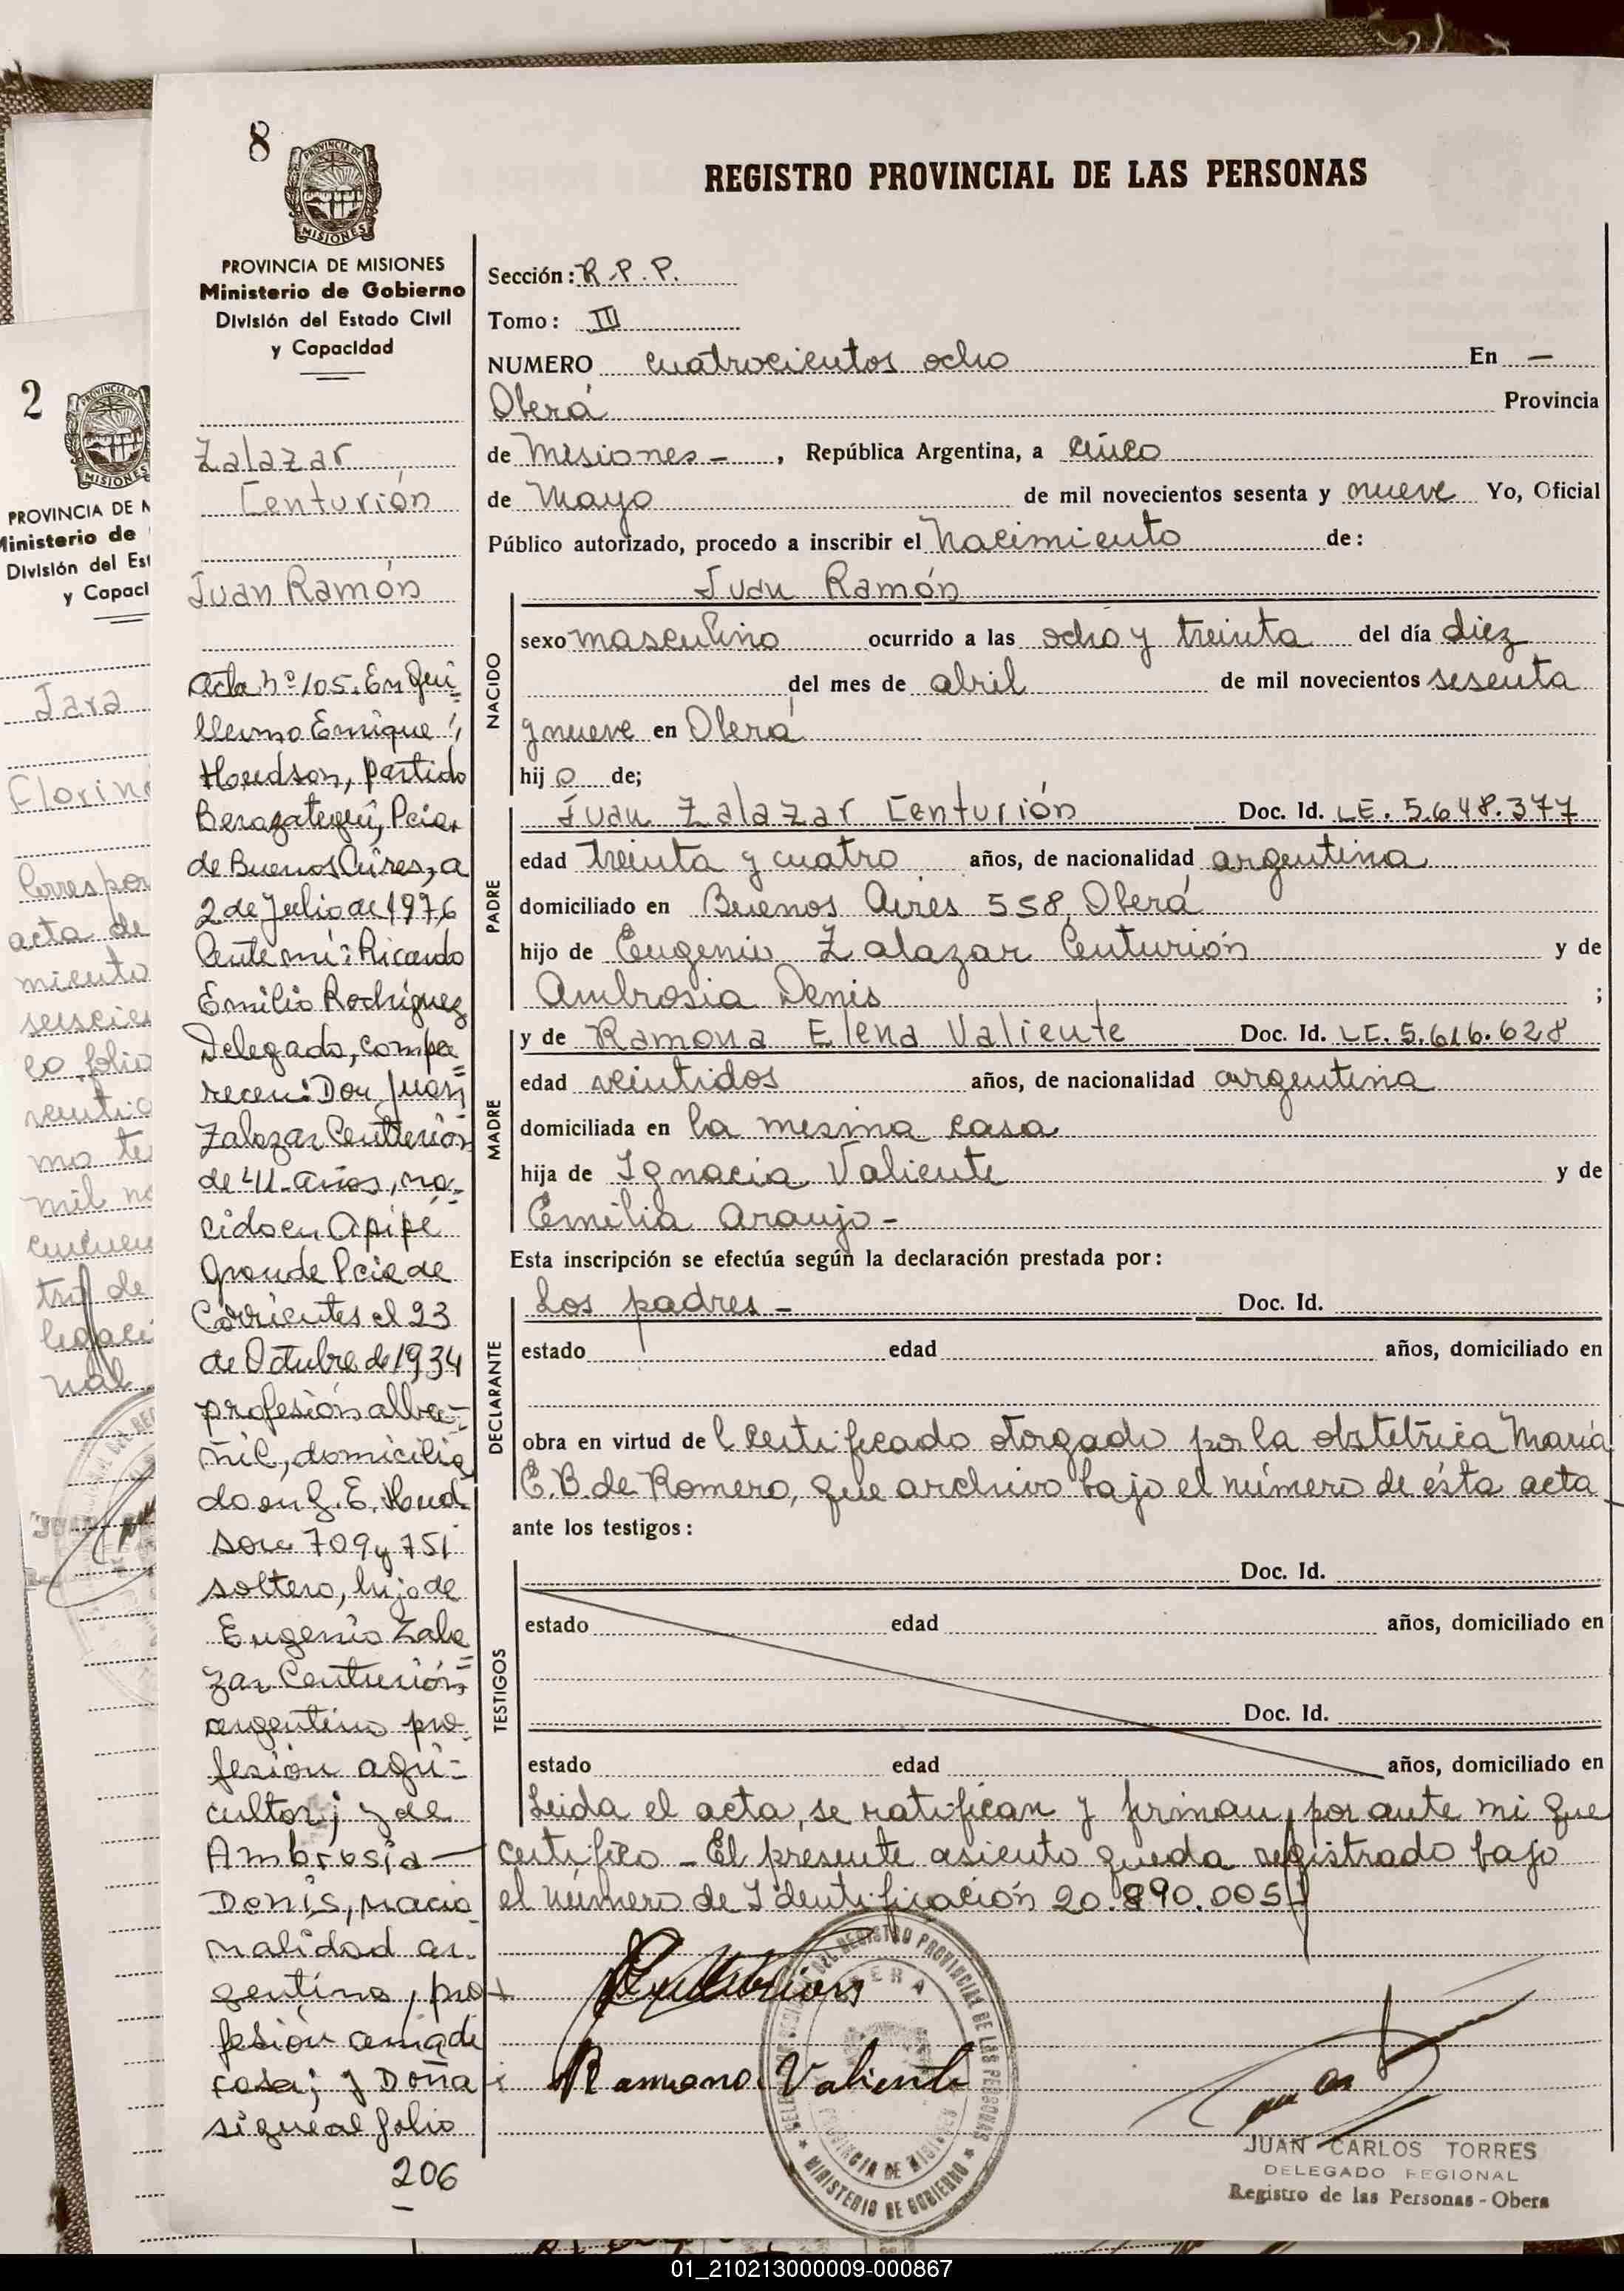 8
PROVINCIA DE
MISIONES
REGISTRO PROVINCIAL DE LAS PERSONAS
PROVINCIA DE MISIONES
Ministerio de Gobierno
División del Estado Civil
y Capacidad
Zalazar
Centurión
Juan Ramón
Acta nº 105. En Gui-
llermo Enrique
Hudson, partido
Berazategui, Pcia.
de Buenos Aires, a
2 de Julio de 1976
Ante mí: Ricardo
Emilio Rodríguez
Delegado, compa=
recen: Don Juan
Zalazar Centurión
de 41 años, na=
cido en Apipé
Grande Pcia de
Corrientes el 23
de Octubre de 1934
profesión alba=
ñil, domicilia
do en G. E. Hud-
son 709 y 751
soltero, hijo de
Eugenio Zala=
zar Centurión,
argentino pro-
fesión agri-
cultor; y de
Ambrosia —
Denis, nacio-
nalidad ar-
gentina, pro-
fesión ama de
casa; y Doña
sigue al folio
206
Sección: R.P.P.
Tomo: III
NUMERO cuatrocientos ocho En —
Oberá Provincia
de Misiones - , República Argentina, a cinco
de Mayo de mil novecientos sesenta y nueve Yo, Oficial
Público autorizado, procedo a inscribir el Nacimiento de:
Juan Ramón
NACIDO
sexo masculino ocurrido a las ocho y treinta del día diez
del mes de abril de mil novecientos sesenta
y nueve en Oberá
hij o de;
PADRE
Juan Zalazar Centurión Doc. Id. LE. 5.648.377
edad treinta y cuatro años, de nacionalidad argentina
domiciliado en Buenos Aires 558, Oberá
hijo de Eugenio Zalazar Centurión y de
Ambrosia Denis ;
MADRE
y de Ramona Elena Valiente Doc. Id. LE. 5.616.628
edad veintidos años, de nacionalidad argentina
domiciliada en la mesma casa
hija de Ignacia Valiente y de
Emilia Araujo -
Esta inscripción se efectúa según la declaración prestada por:
DECLARANTE
Los padres - Doc. Id.
estado edad años, domiciliado en
obra en virtud de l certificado otorgado por la obstetrica María
E.B. de Romero, que archivo bajo el número de ésta acta
ante los testigos:
TESTIGOS
Doc. Id.
estado edad años, domiciliado en
Doc. Id.
estado edad años, domiciliado en
Leida el acta, se ratifican y firman, por ante mi que
certifico - El presente asiento queda registrado bajo
el número de Identificación 20.890.005
Centurion
Ramona Valiente
DEL REGISTRO PROVINCIAL DE LAS PERSONAS
OBERA
PROVINCIA DE MISIONES
MINISTERIO DE GOBIERNO
JUAN CARLOS TORRES
DELEGADO REGIONAL
Registro de las Personas - Obera
2
MISIONES
PROVINCIA DE M
Ministerio de
División del Est
y Capaci
Jara
Florin
Correspon
acta de
miento
seiscien
co folio
mo te
mil no
tro de
legaci
nal
01_210213000009-000867